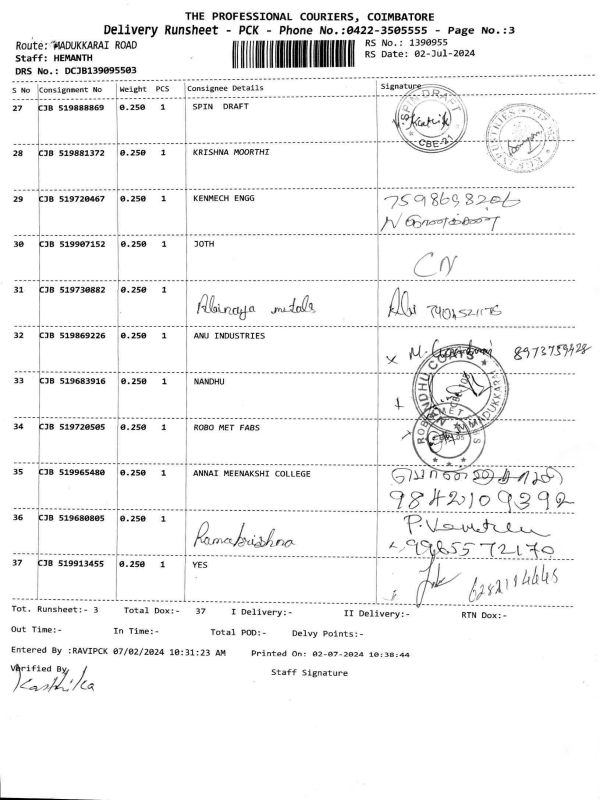 THE PROFESSIONAL COURIERS, COIMBATORE
Delivery Runsheet - PCK - Phone No.:0422-3505555 - Page No.:3
Route: MADUKKARAI ROAD RS No.: 1390955
Staff: HEMANTH RS Date: 02-Jul-2024
DRS No.: DCJB139095503
S No Consignment No Weight PCS Consignee Details Signature
27 CJB 519888869 0.250 1 SPIN DRAFT
SPIN DRAFT
CBE-21
28 CJB 519881372 0.250 1 KRISHNA MOORTHI
29 CJB 519720467 0.250 1 KENMECH ENGG 7598698206
30 CJB 519907152 0.250 1 JOTH CN
31 CJB 519730882 0.250 1 Abinaya metals
32 CJB 519869226 0.250 1 ANU INDUSTRIES
33 CJB 519683916 0.250 1 NANDHU
34 CJB 519720505 0.250 1 ROBO MET FABS
35 CJB 519965480 0.250 1 ANNAI MEENAKSHI COLLEGE
9842109392
36 CJB 519680805 0.250 1 Ramakrishna
9965572170
37 CJB 519913455 0.250 1 YES
Tot. Runsheet:- 3 Total Dox:- 37 I Delivery:- II Delivery:- RTN Dox:-
Out Time:- In Time:- Total POD:- Delvy Points:-
Entered By :RAVIPCK 07/02/2024 10:31:23 AM Printed On: 02-07-2024 10:38:44
Verified By Staff Signature